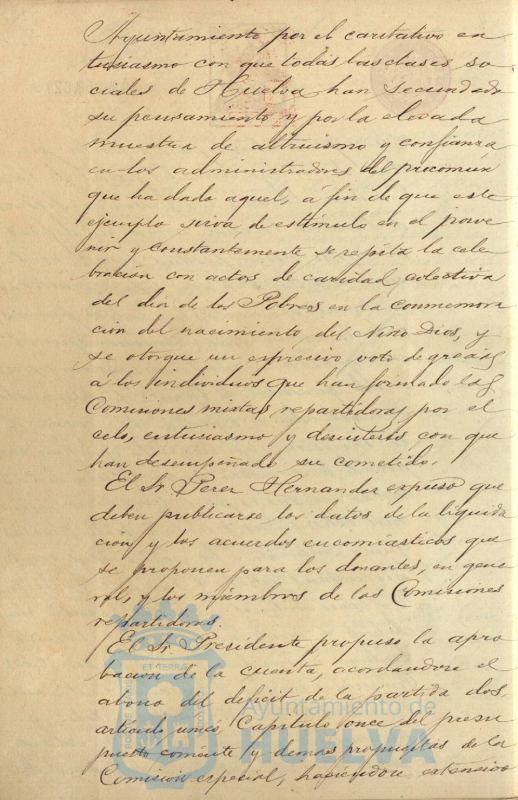 Ayuntamiento por el caritativo en
tusiasmo con que todas las clases so
ciales de Huelva han secundado
su pensamiento y por la elevada
muestra de altruismo y confianza
en los administradores del procomún
que ha dado aquel, á fin de que este
ejemplo sirva de estímulo en el porve
nir y constantemente se repita la cele
bración con actos de caridad colectiva
del dia de los Pobres en la conmemora
ción del nacimiento del Niño Dios, y
se otorgue un expresivo voto de gracias
á los individuos que han formado las
Comisiones mixtas repartidoras por el
celo, entusiasmo y desinterés con que
han desempeñado su cometido.
El Sr. Perez Hernandez expuso que
deben publicarse los datos de la liquida
ción y los acuerdos encomiásticos que
se proponen para los donantes, en gene
ral, y los miembros de las Comisiones
repartidoras.
El Sr. Presidente propuso la apro
bación de la cuenta, acordandose el
abono del deficit de la partida dos,
artículo unico, Capítulo once del presu
puesto corriente y demas propuestas de la
Comisión especial, haciendose extensivo
ET TERRÆ
Ayuntamiento de
HUELVA